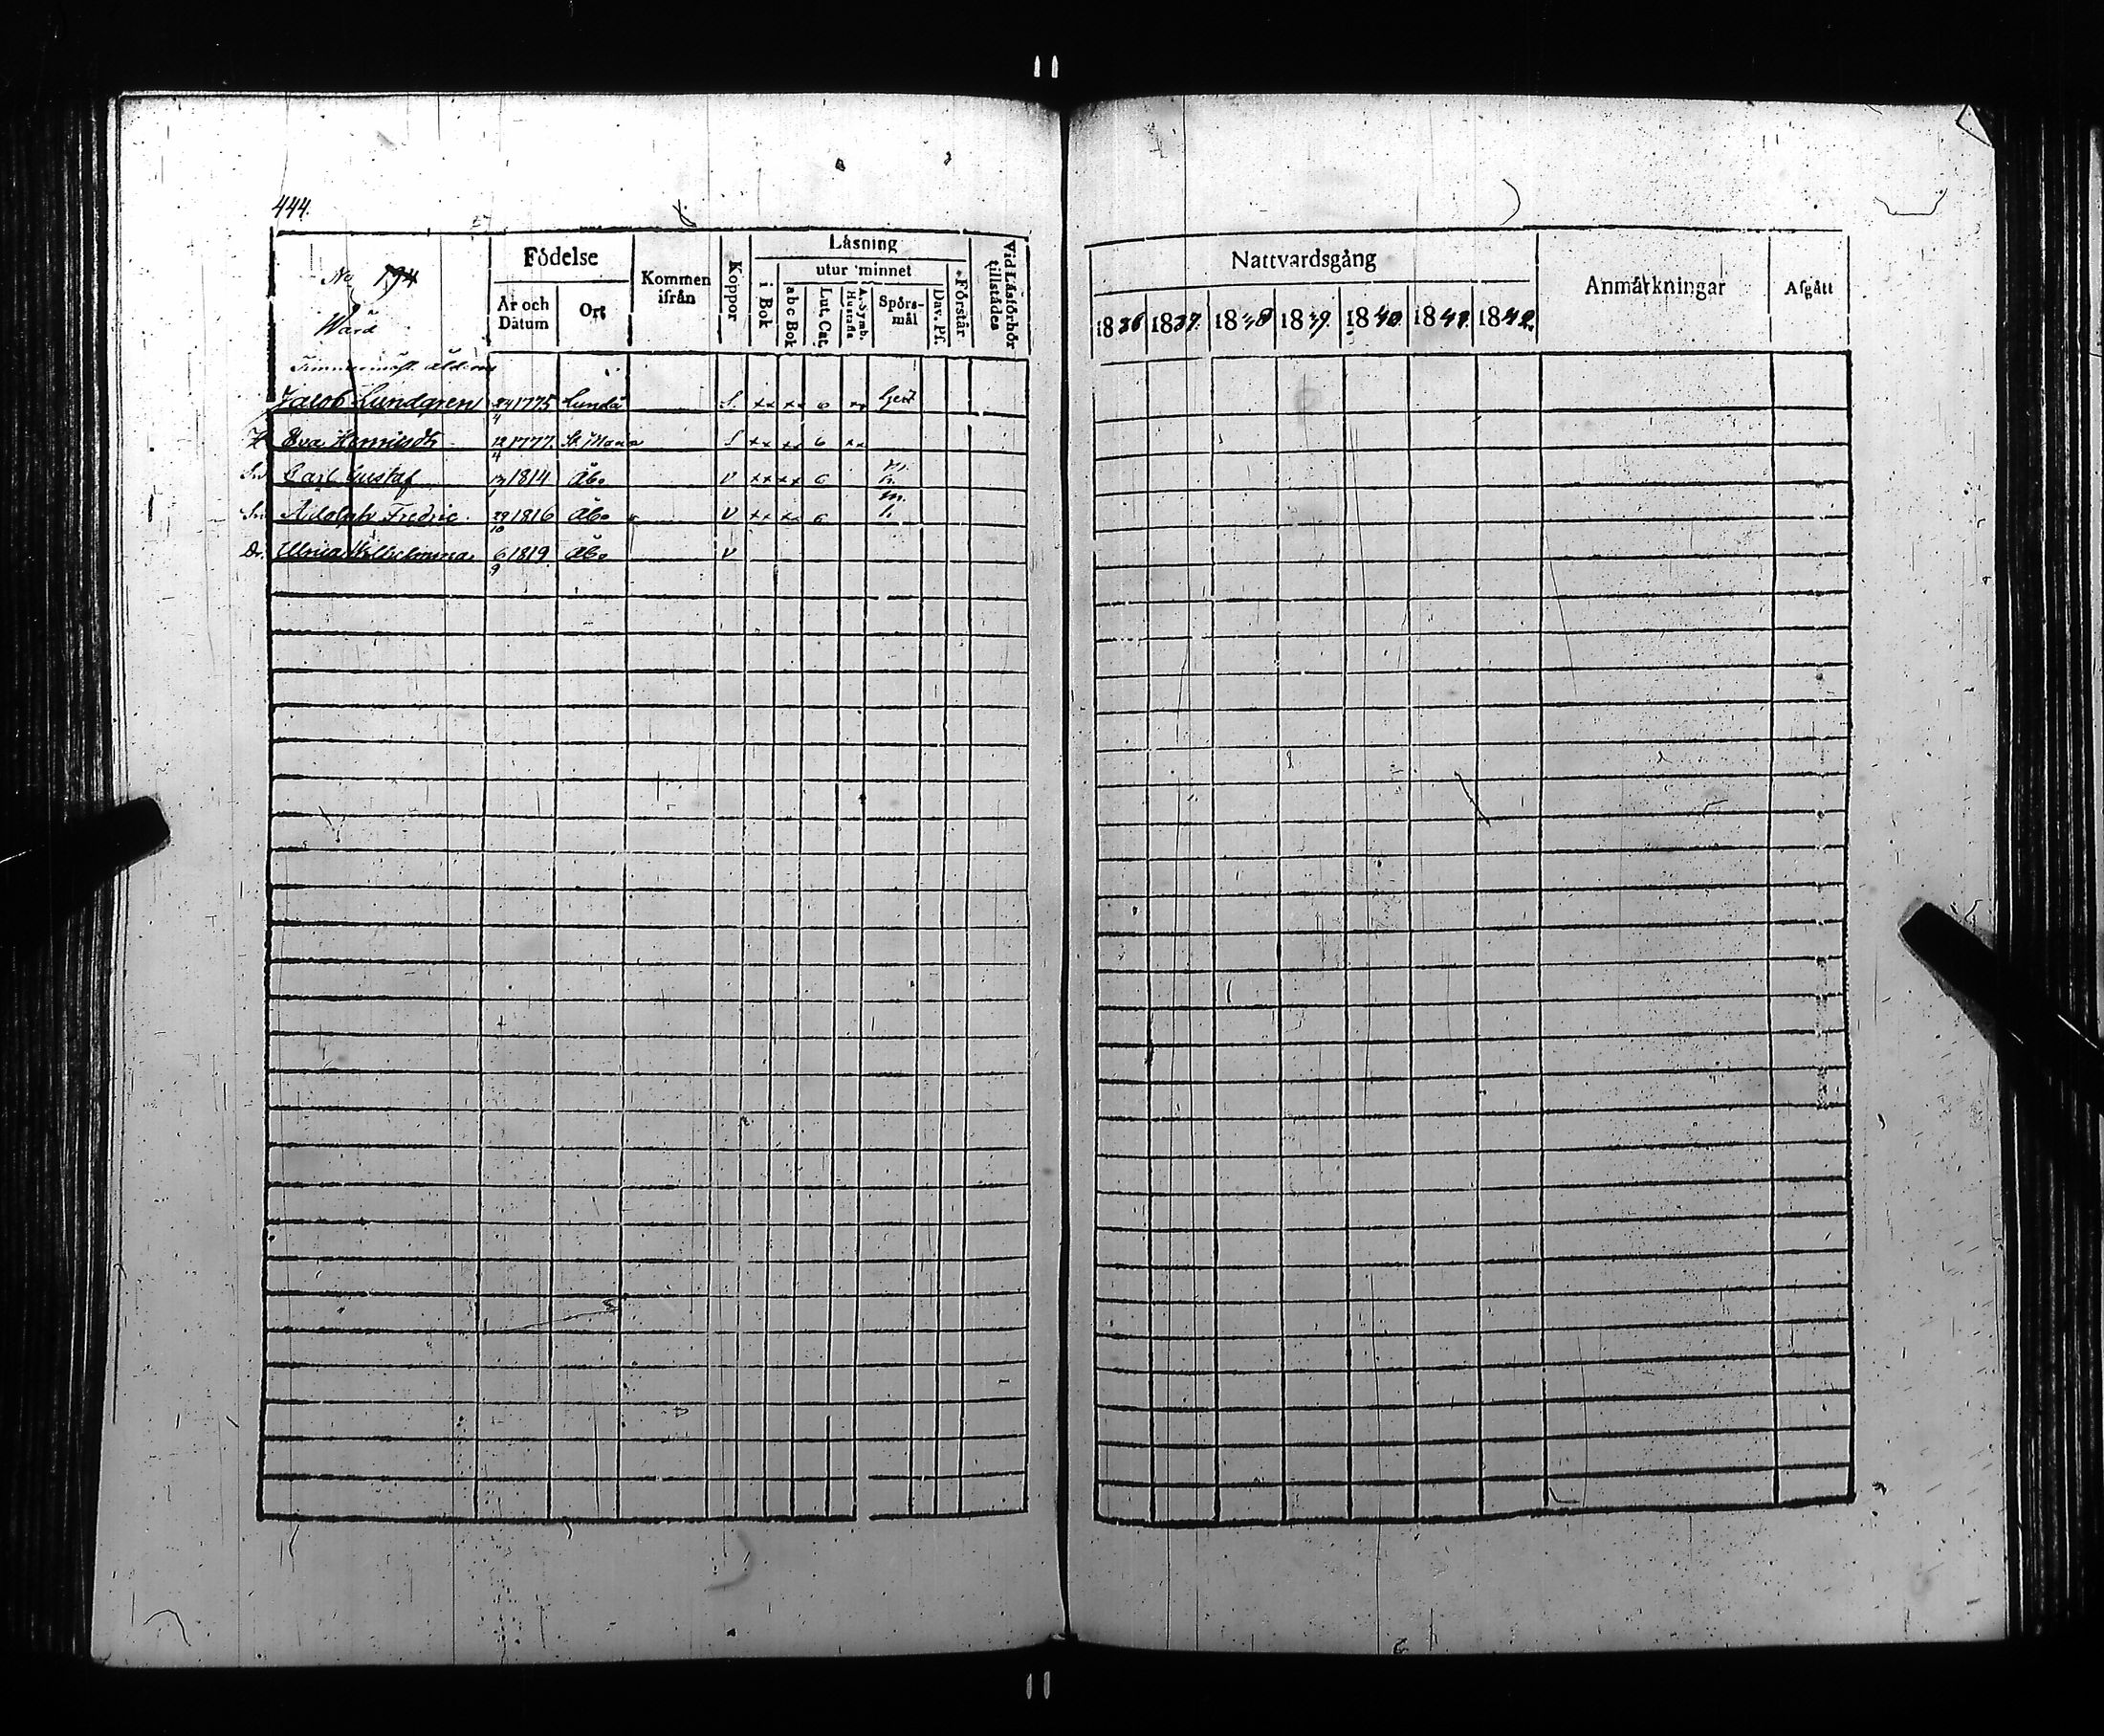 444.
No 194
Wård
Födelse
Kommen ifrån
Koppor
Läsning
utur minnet
Förstår
Vid Läsförhör tillstädes
År och Datum
Ort
i Bok
abc Bok
Lut. Cat.
A. Symb. Hustafla
Spörs-mål
Dav. Ps.
Nattvardsgång
Anmärkningar
Afgått
1836 1837. 1838 1839. 1840. 1841. 1842.
Jacob Lundgren 24/4 1775 S. xx xx 6 xx
H Eva Henricsdr 12/4 1777. St. Maria S xx xx 6 xx
Sn Carl Gustaf 1814 Åbo V xx xx 6
Sn Adolph Fredric. 29/10 1816 Åbo V xx xx 6
Dr. Ulrica Wilhelmina. 6/9 1819. Åbo V